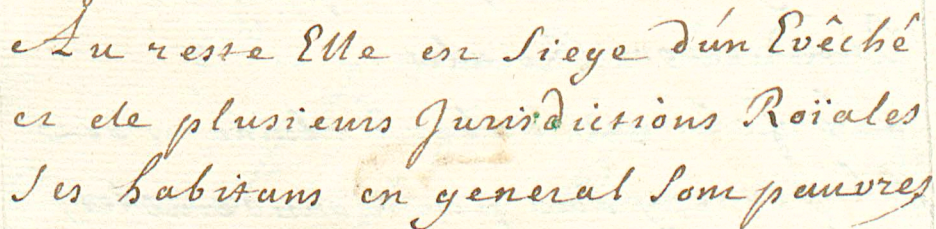 Au reste Elle est Siege d'un Evêché
et de plusieurs Jurisdictions Roïales
Ses habitans en general sont pauvres